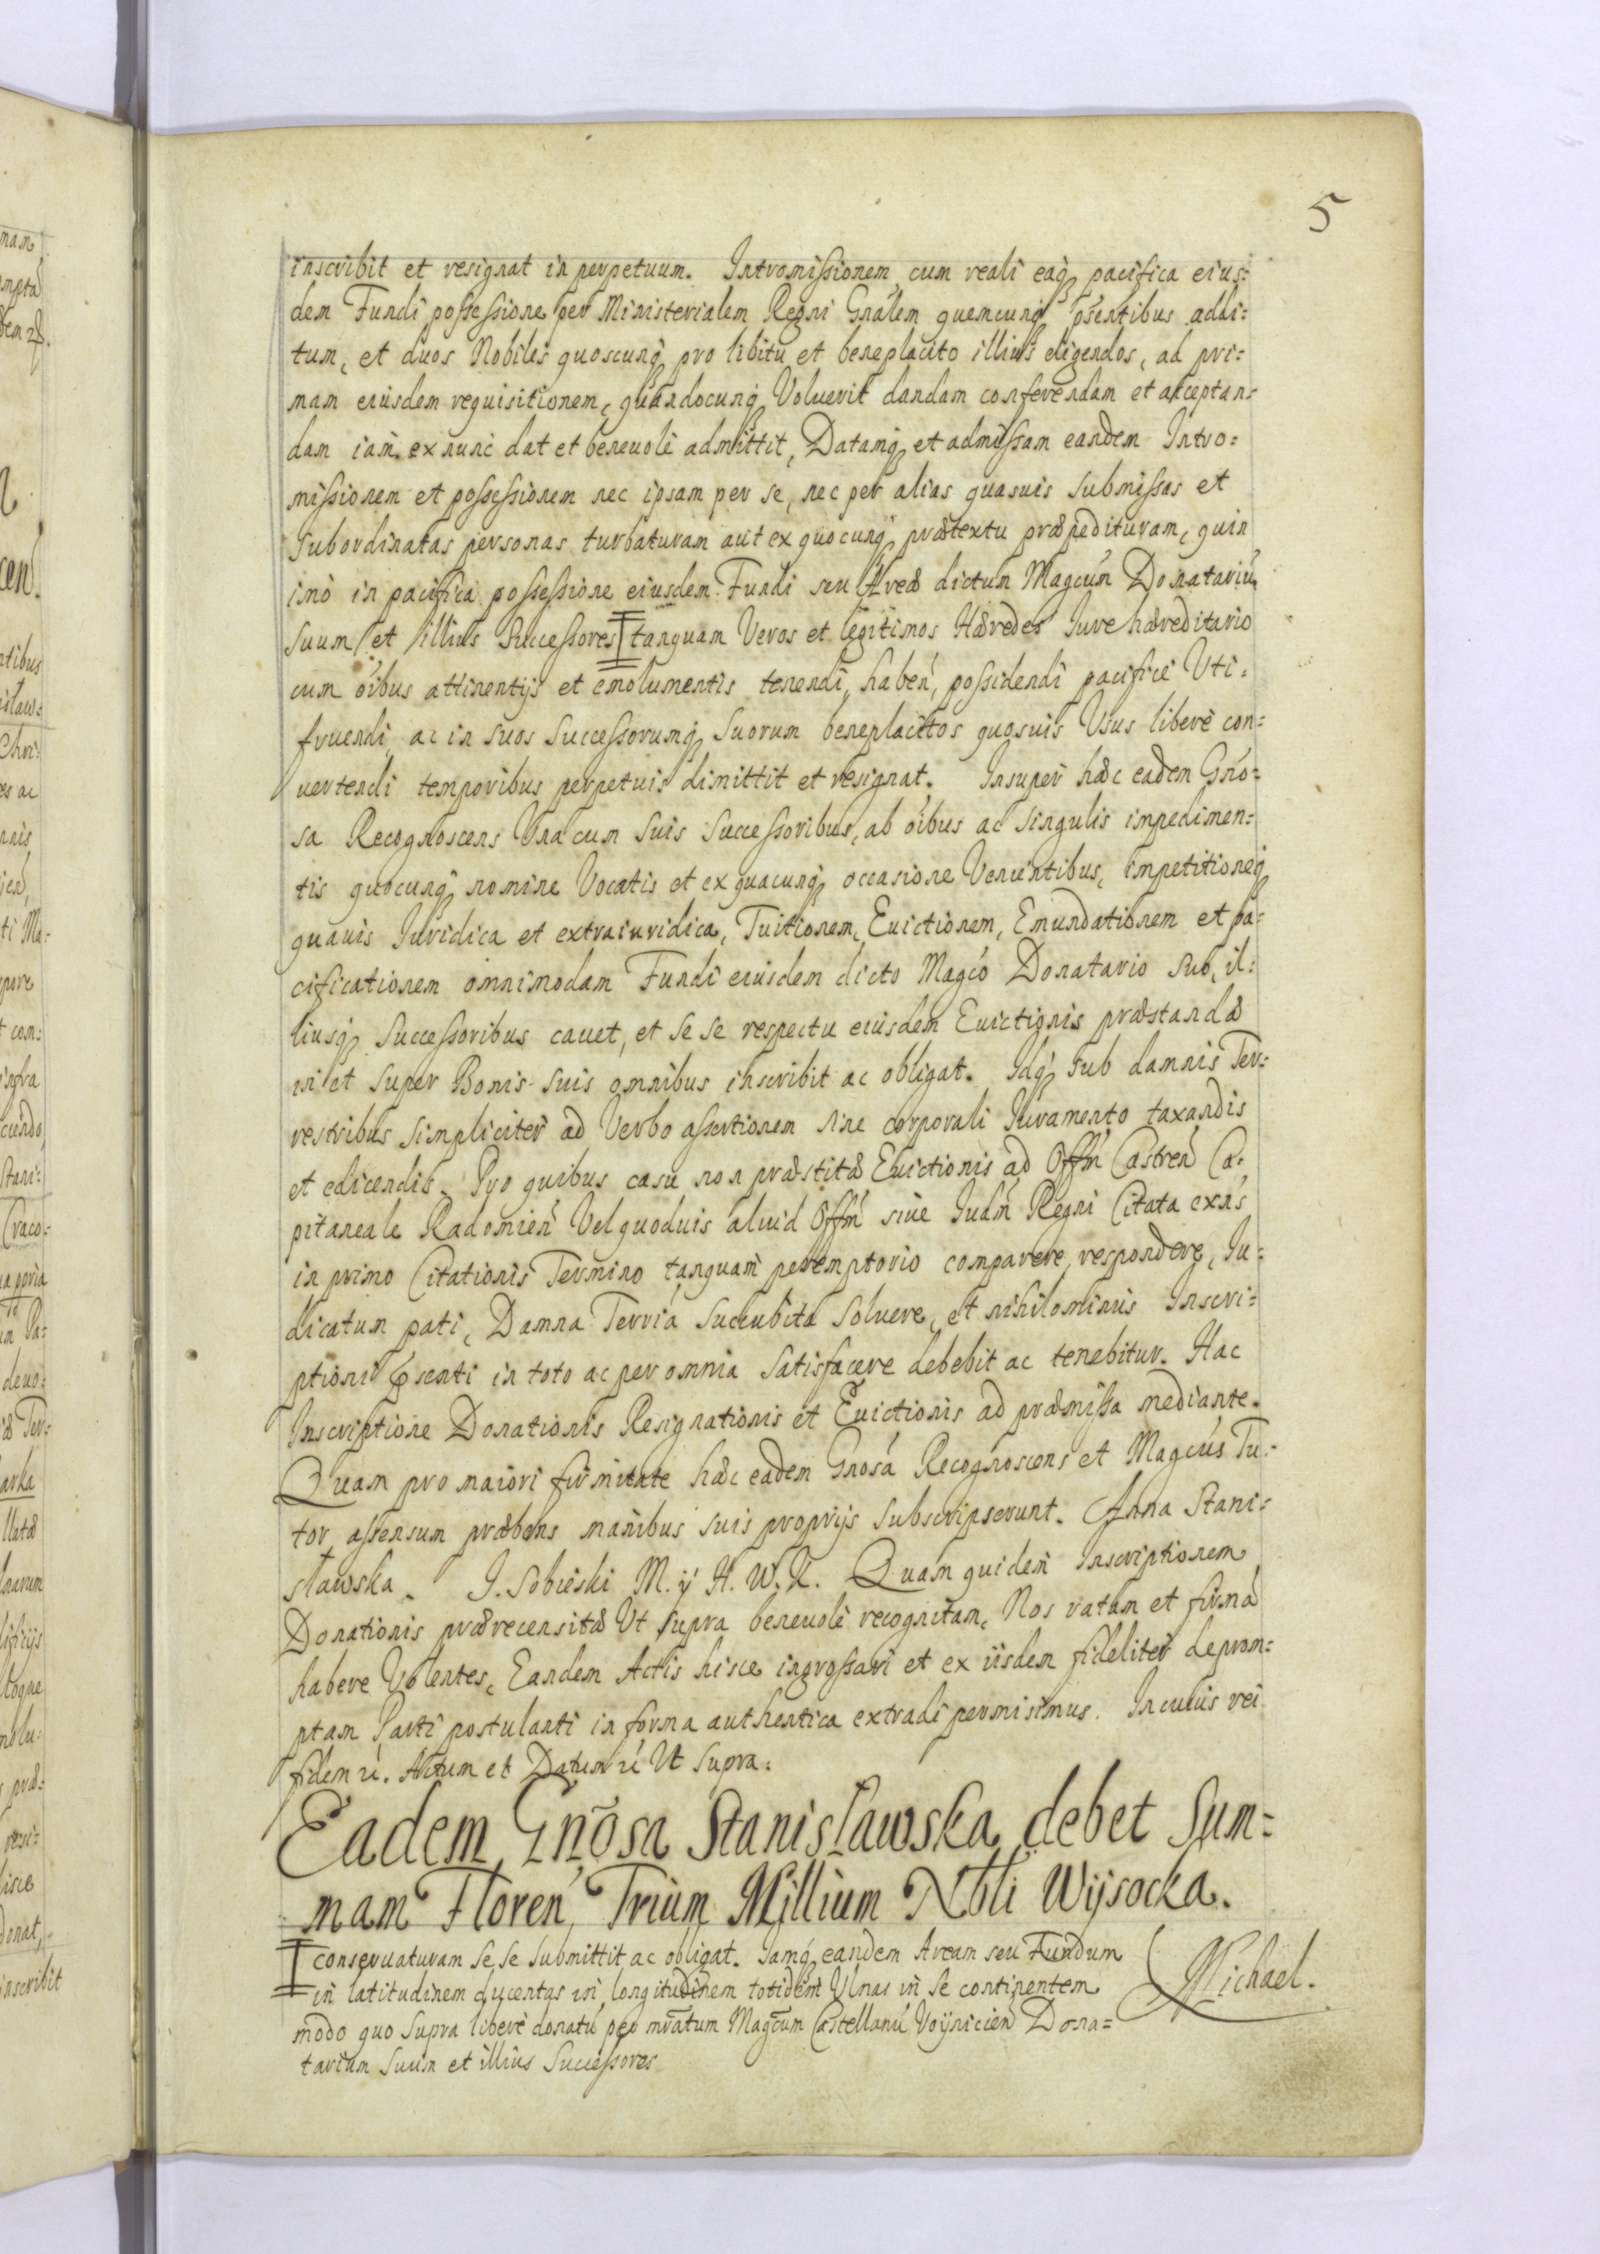 5
inscribit et resignat in perpetuum. Intromissionem cum reali eaq pacifica eius=
dem Fundi possessione per Ministerialem Regni Gnálem quemcunq psentibus addi=
tum, et duos Nobiles quoscunq pro libitu et beneplacito illius eligendos, ad pri=
mam eiusdem requisitionem, quandocunq Voluerit dandam conferendam et acceptan=
dam iam ex nunc dat et beneuolè admittit, Datamq et admissam eandem Intro=
missionem et possessionem nec ipsam per se, nec per alias quasuis submissas et
subordinatas personas turbaturam aut ex quocunq prætextu præpedituram, quin
imò in pacifica possessione eiusdem Fundi seu Areæ dictum Magcum Donatariu
suum et illius Successores tanquam Veros et legitimos Hæredes Iure hæreditario
cum oibus attinentijs et emolumentis tenendi, haben, possidendi pacificè Uti=
fruendi ac in suos Successorumq suorum beneplacitos quosuis Usus liberè con=
uertendi temporibus perpetuis dimittit et resignat. Insuper hæc eadem Gnó=
sa Recognoscens Una cum suis Successoribus, ab oibus ac singulis impedimen=
tis quocunq nomine Vocatis et ex quacunq occasione Venientibus, impetitioneq
quauis Iuridica et extraiuridica, Tuitionem, Euictionem, Emundationem et pa=
cificationem omnimodam Fundi eiusdem dicto Magco Donatario suo, il=
liusq Successoribus cauet, et se se respectu eiusdem Euictionis præstandæ
in et super Bonis suis omnibus inscribit ac obligat. Idq sub damnis Ter=
restribus simpliciter ad Verbo assertionem sine corporali Iuramento taxandis
et edicendis. Pro quibus casu non præstitæ Euictionis ad Offm Castren Ca=
pitaneale Radomien Vel quoduis aliud Offm siue Iudm Regni Citata exns
in primo Citationis Termino tanquam peremptorio comparere, respondere, Iu=
dicatum pati, Damna Terria succubita soluere, et nihilominus Inscri=
ptioni psenti in toto ac per omnia satisfacere debebit ac tenebitur. Hac
Inscriptione Donationis Resignationis et Euictionis ad præmissa mediante.
Quam pro maiori firmitate hæc eadem Gnosa Recognoscens et Magcus Tu=
tor assensum præbens manibus suis proprijs subscripserunt. Anna Stani=
sławska. J. Sobieski M. y H. W. K. Quam quidem Inscriptionem
Donationis prærecensitæ Ut supra beneuolè recognitam, Nos ratam et firmá
habere Volentes, Eandem Actis hisce ingrossari et ex iisdem fideliter deprom=
ptam Parti postulanti in forma authentica extradi permisimus. In cuius rei
fidem &. Actum et Datum & Ut supra.
Eadem Gnõsa Stanisławska debet Sum=
mam Floren Trium Millium Nbli Wijsocka.
conseruaturam se se submittit ac obligat. Iamq eandem Aream seu Fundum
in latitudinem ducentas in longitudinem totidem Ulnas in se continentem
modo quo supra liberè donatu per mratum Magcum Castellanu Voijnicien Dona=
tarium suum et illius Successores
Michael.